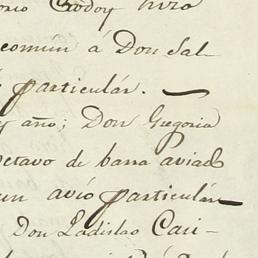 onio Godoy hizo
comun á Don Sal-
particulár. —
y año; Don Gregorio
Octavo de barra aviado
un avío particulár
Don Ladislao Cari-